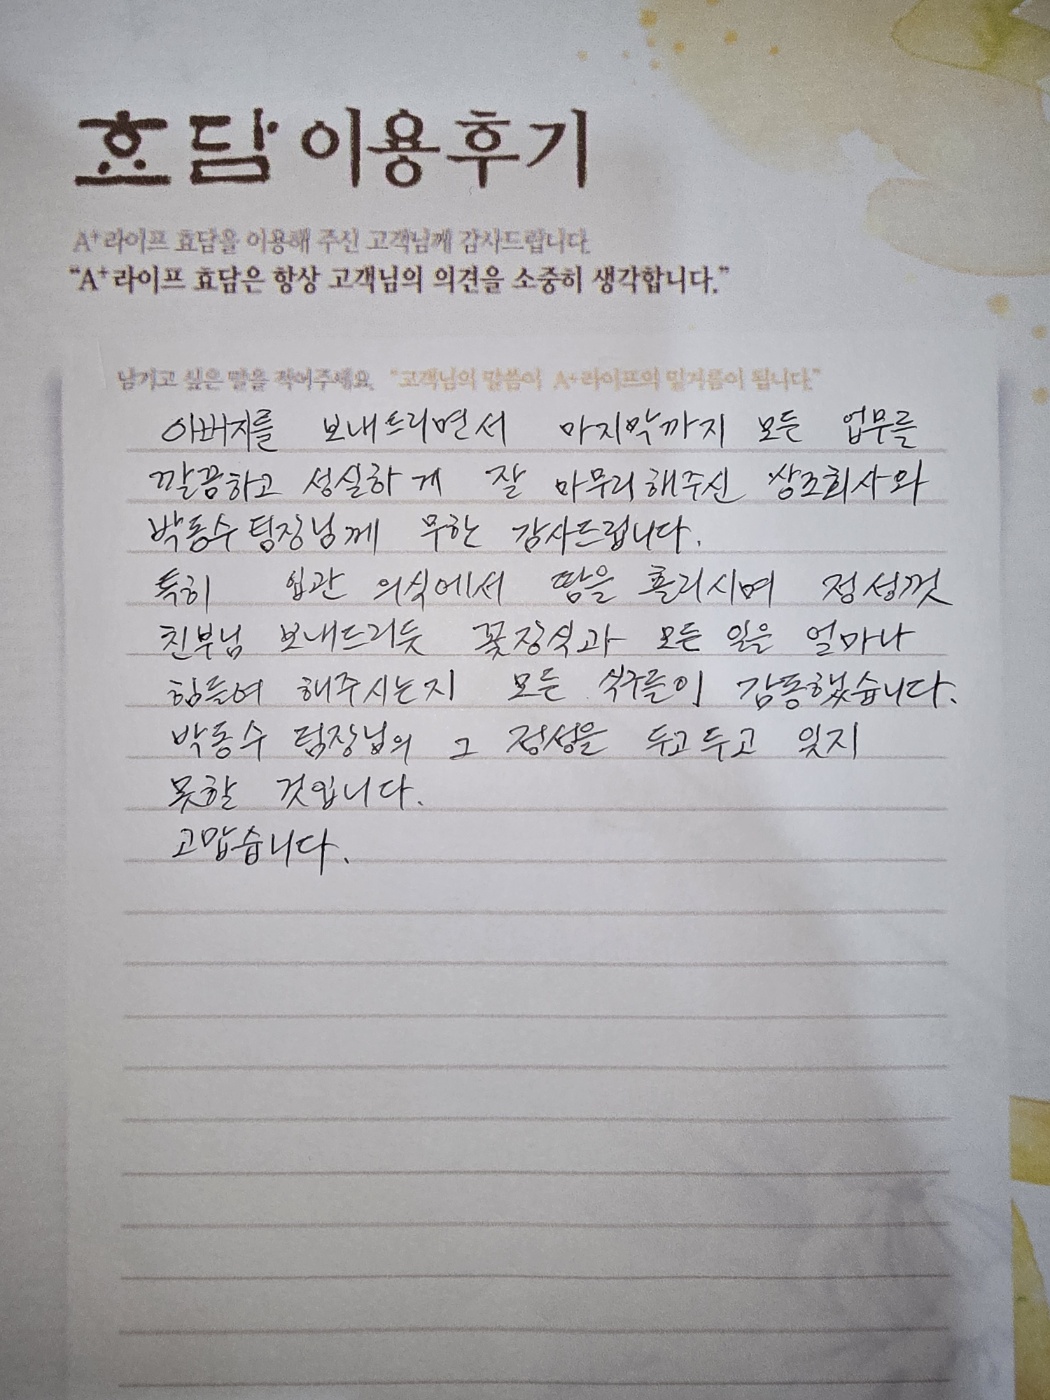 효담 이용후기
A⁺라이프 효담을 이용해 주신 고객님께 감사드립니다.
“A⁺라이프 효담은 항상 고객님의 의견을 소중히 생각합니다.”
남기고 싶은 말을 적어주세요. “고객님의 말씀이 A⁺라이프의 밑거름이 됩니다.”
아버지를 보내드리면서 마지막까지 모든 업무를
깔끔하고 성실하게 잘 마무리해주신 상조회사와
박동수 팀장님께 무한 감사드립니다.
특히 입관 의식에서 땀을 흘리시며 정성껏
친부님 보내드리듯 꽃장식과 모든 일을 얼마나
힘들여 해주시는지 모든 식구들이 감동했습니다.
박동수 팀장님의 그 정성을 두고두고 잊지
못할 것입니다.
고맙습니다.